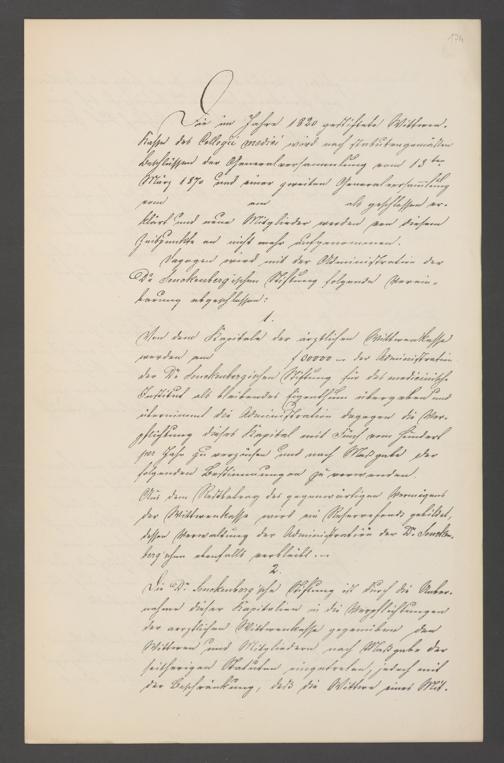 174
Die im Jahre 1820 gestiftete Wittwen-
kasse des Collegii medici wird nach statutengemäßen
Beschlüssen der Generalversammlung vom 18ten
März 1870 und einer zweiten Generalversammlung
vom am als geschlossen er-
klärt und neue Mitglieder werden von diesem
Zeitpunkte an nicht mehr aufgenommen.
Dagegen wird mit der Administration der
Dr. Senckenbergischen Stiftung folgende Verein-
barung abgeschlossen:
1.
Von dem Kapitale der ärztlichen Wittwenkasse
werden am f 50000 — der Administration
der Dr. Senckenbergischen Stiftung für das medicinische
Institut als bleibendes Eigenthum übergeben und
übernimmt die Administration dagegen die Ver-
pflichtung dieses Kapital mit Fünf vom Hundert
pro Jahr zu verzinsen und nach Maßgabe der
folgenden Bestimmungen zu verwenden.
Aus dem Restbetrag des gegenwärtigen Vermögens
der Wittwenkasse wird ein Reservefonds gebildet,
dessen Verwaltung der Administration der Dr. Sencken-
berg'schen ebenfalls verbleibt. —
2.
Die Dr. Senckenberg'sche Stiftung ist durch die Ueber-
nahme dieser Kapitalien in die Verpflichtungen
der ärztlichen Wittwenkasse gegenüber den
Wittwen und Mitgliedern nach Maßgabe der
seitherigen Statuten eingetreten, jedoch mit
der Beschränkung, daß die Wittwe eines Mit-